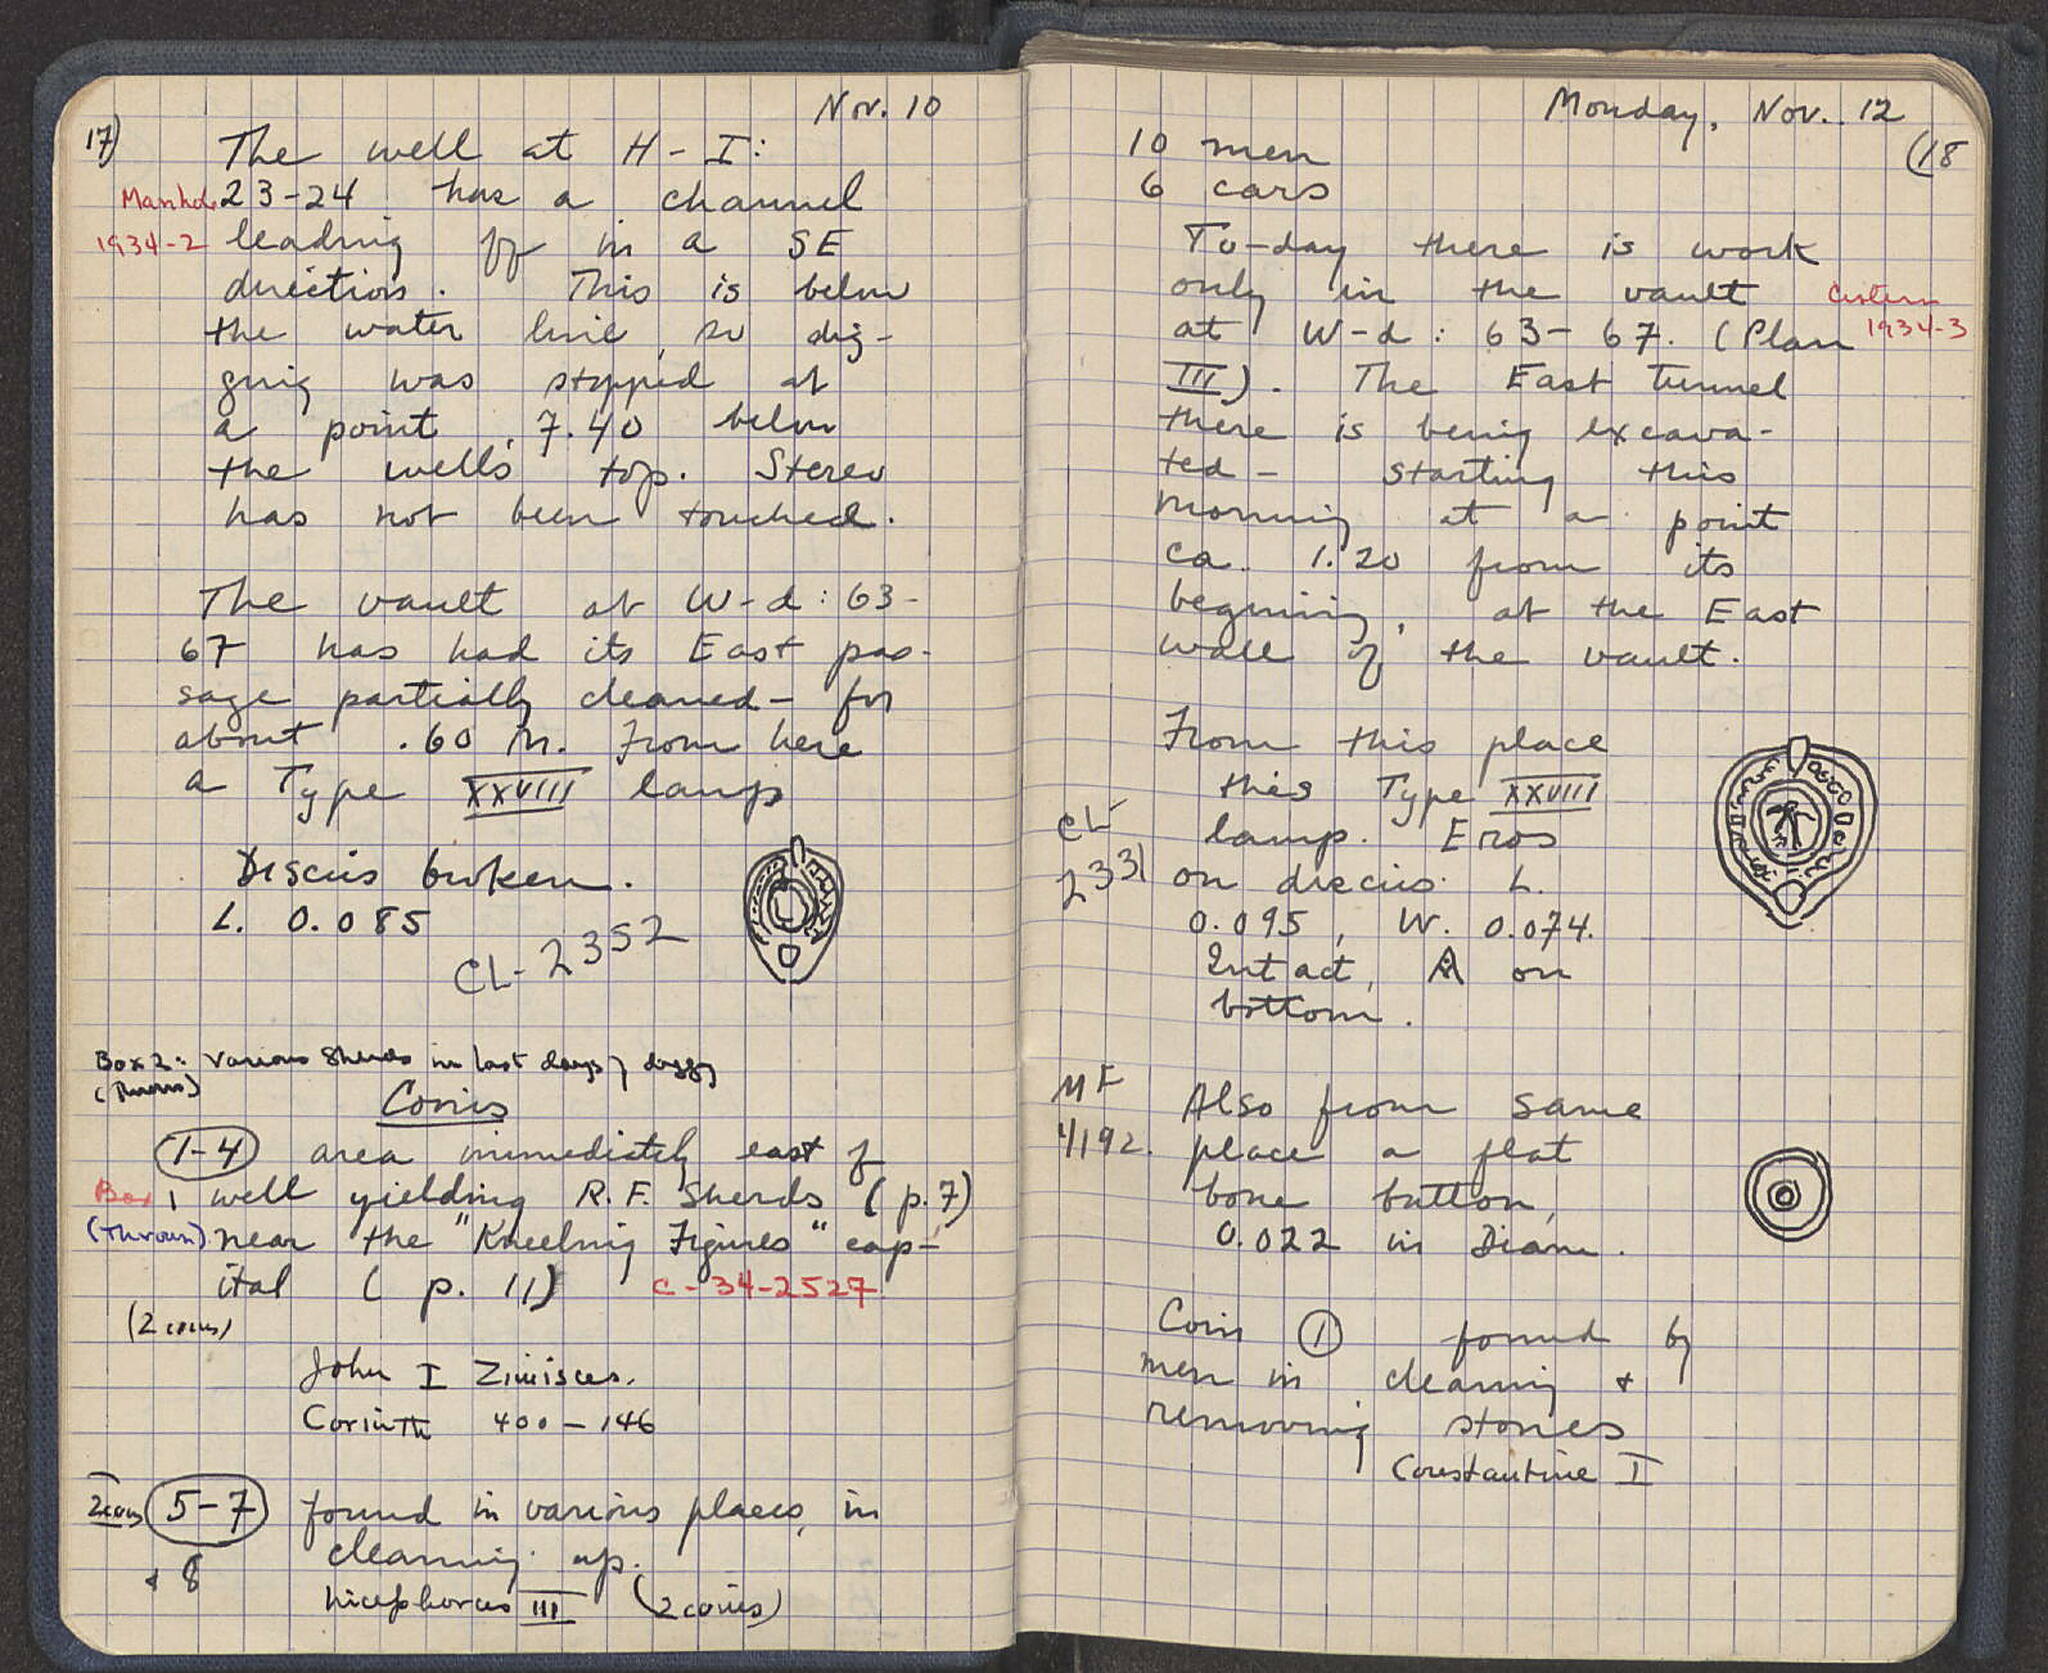 Nov. 10
17)
The well at H - I:
Manhole 23-24 has a channel
1934-2 leading off in a SE
direction. This is below
the water line, so dig-
ging was stopped at
a point 7.40 below
the well's top. Stereo
has not been touched.
The vault at W-d: 63-
67 has had its East pas-
sage partially cleaned - for
about .60 m. From here
a Type XXVIII lamp
Discus broken.
L. 0.085
CL-2352
Box 2: Various Sherds in last days of digging
(Thrown)
Coins
1-4 area immediately east of
Box 1 well yielding R.F. Sherds (p. 7)
(Thrown) near the "Kneeling Figures" cap-
ital (p. 11) C-34-2527
(2 coins)
John I Zimisces.
Corinth 400-146
2 coins 5-7 found in various places, in
cleaning up.
+ 8
Nicephorus III (2 coins)
Monday, Nov. 12
(18
10 men
6 cars
To-day there is work
only in the vault Cistern
at W-d: 63-67. (Plan 1934-3
III). The East tunnel
there is being excava-
ted - starting this
morning at a point
ca. 1.20 from its
begining, at the East
wall of the vault.
From this place
this Type XXVIII
CL
lamp. Eros
2331 on discus. L.
0.095, W. 0.074.
Intact, A on
bottom.
MF
Also from same
4192. place a flat
bone button,
0.022 in Diam.
Coin 1 found by
men in cleaning +
removing stones
Constantine I